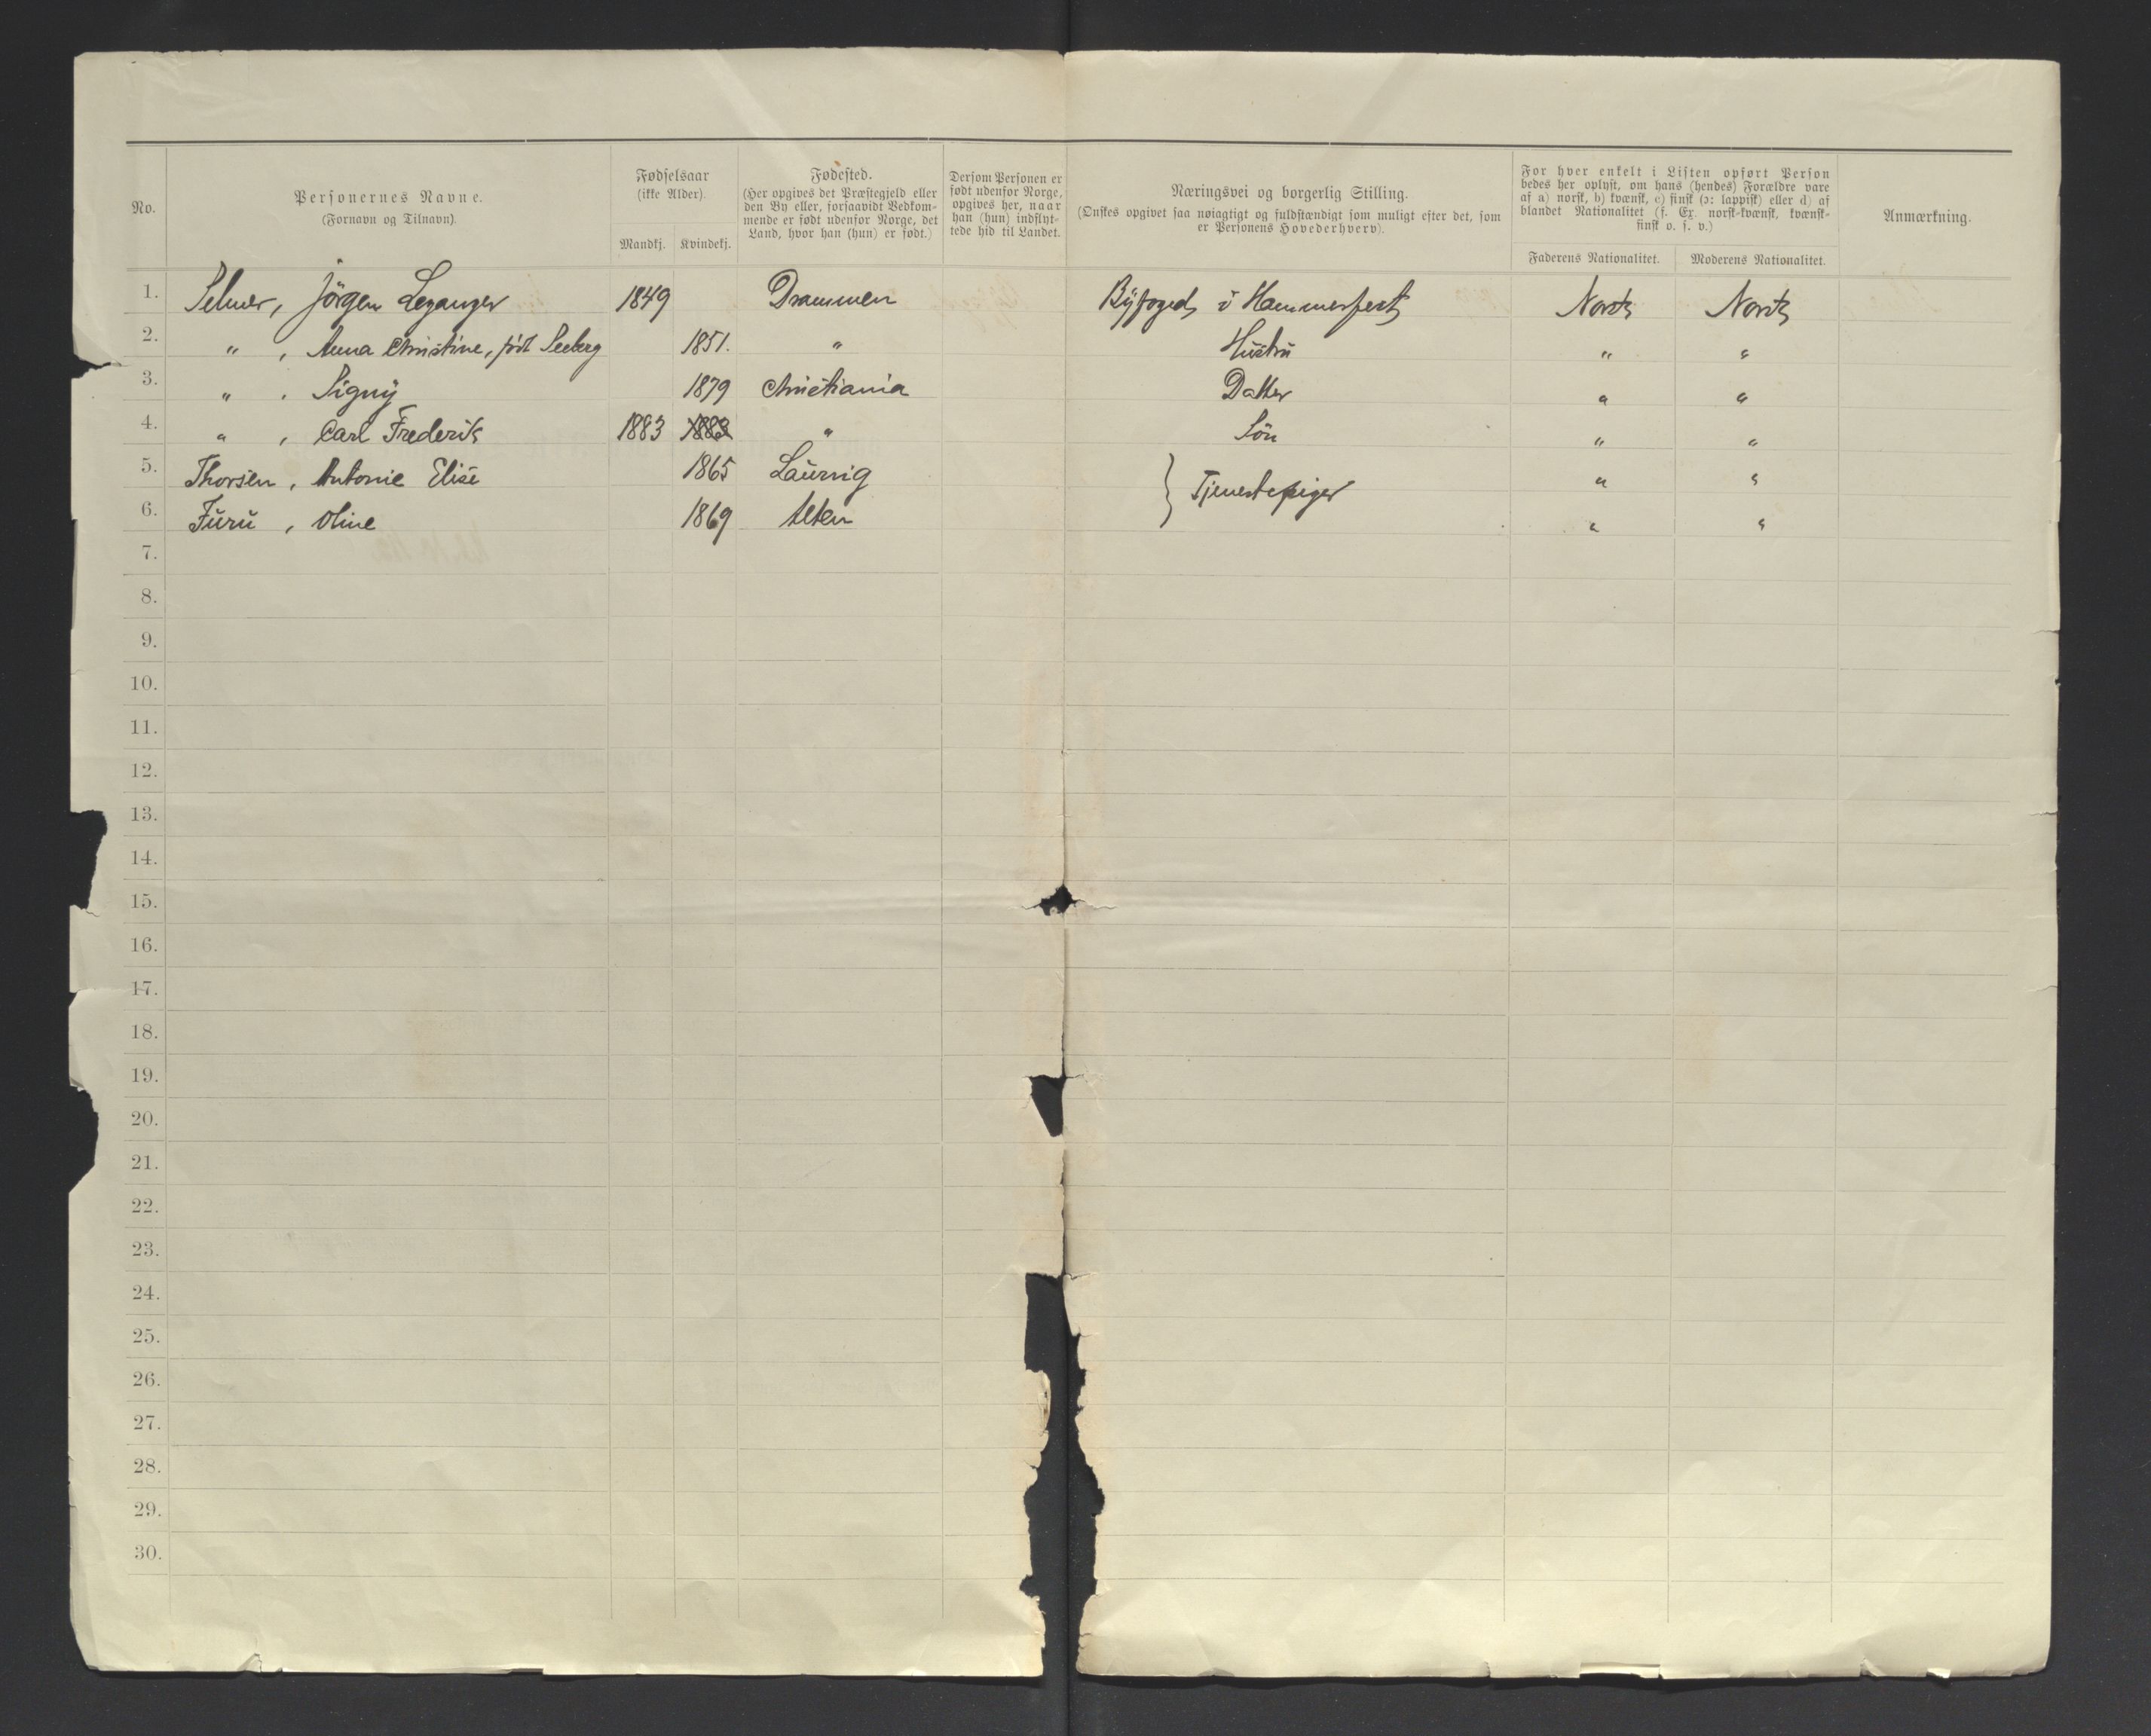 No.
Personernes Navne.
(Fornavn og Tilnavn).
Fødselsaar
(ikke Alder).
Mandkj. Kvindekj.
Fødested.
(Her opgives det Præstegjeld eller
den By eller, forsaavidt Vedkom-
mende er født udenfor Norge, det
Land, hvor han (hun) er født.)
Dersom Personen er
født udenfor Norge,
opgives her, naar
han (hun) indflyt-
tede hid til Landet.
Næringsvei og borgerlig Stilling.
(Ønskes opgivet saa nøiagtigt og fuldstændigt som muligt efter det, som
er Personens Hovederhverv).
For hver enkelt i Listen opført Person
bedes her oplyst, om hans (hendes) Forældre vare
af a) norsk, b) kvænsk, c) finsk (ɔ: lappisk) eller d) af
blandet Nationalitet (f. Ex. norsk-kvænsk, kvænsk-
finsk o. s. v.)
Faderens Nationalitet. Moderens Nationalitet.
Anmærkning.
1. Selmer, Jörgen Leganger 1849 Drammen Byfoged i Hammerfest Norsk Norsk
2. " , Anna Christine, född Seeberg 1851. " Hustru " "
3. " , Signy 1879 Christiania Datter " "
4. " , Carl Frederik 1883 1883 " Sön " "
5. Thorsen, Antonie Elise 1865 Laurvig } Tjenestepiger " "
6. Furu, Oline 1869 Alten " "
7.
8.
9.
10.
11.
12.
13.
14.
15.
16.
17.
18.
19.
20.
21.
22.
23.
24.
25.
26.
27.
28.
29.
30.